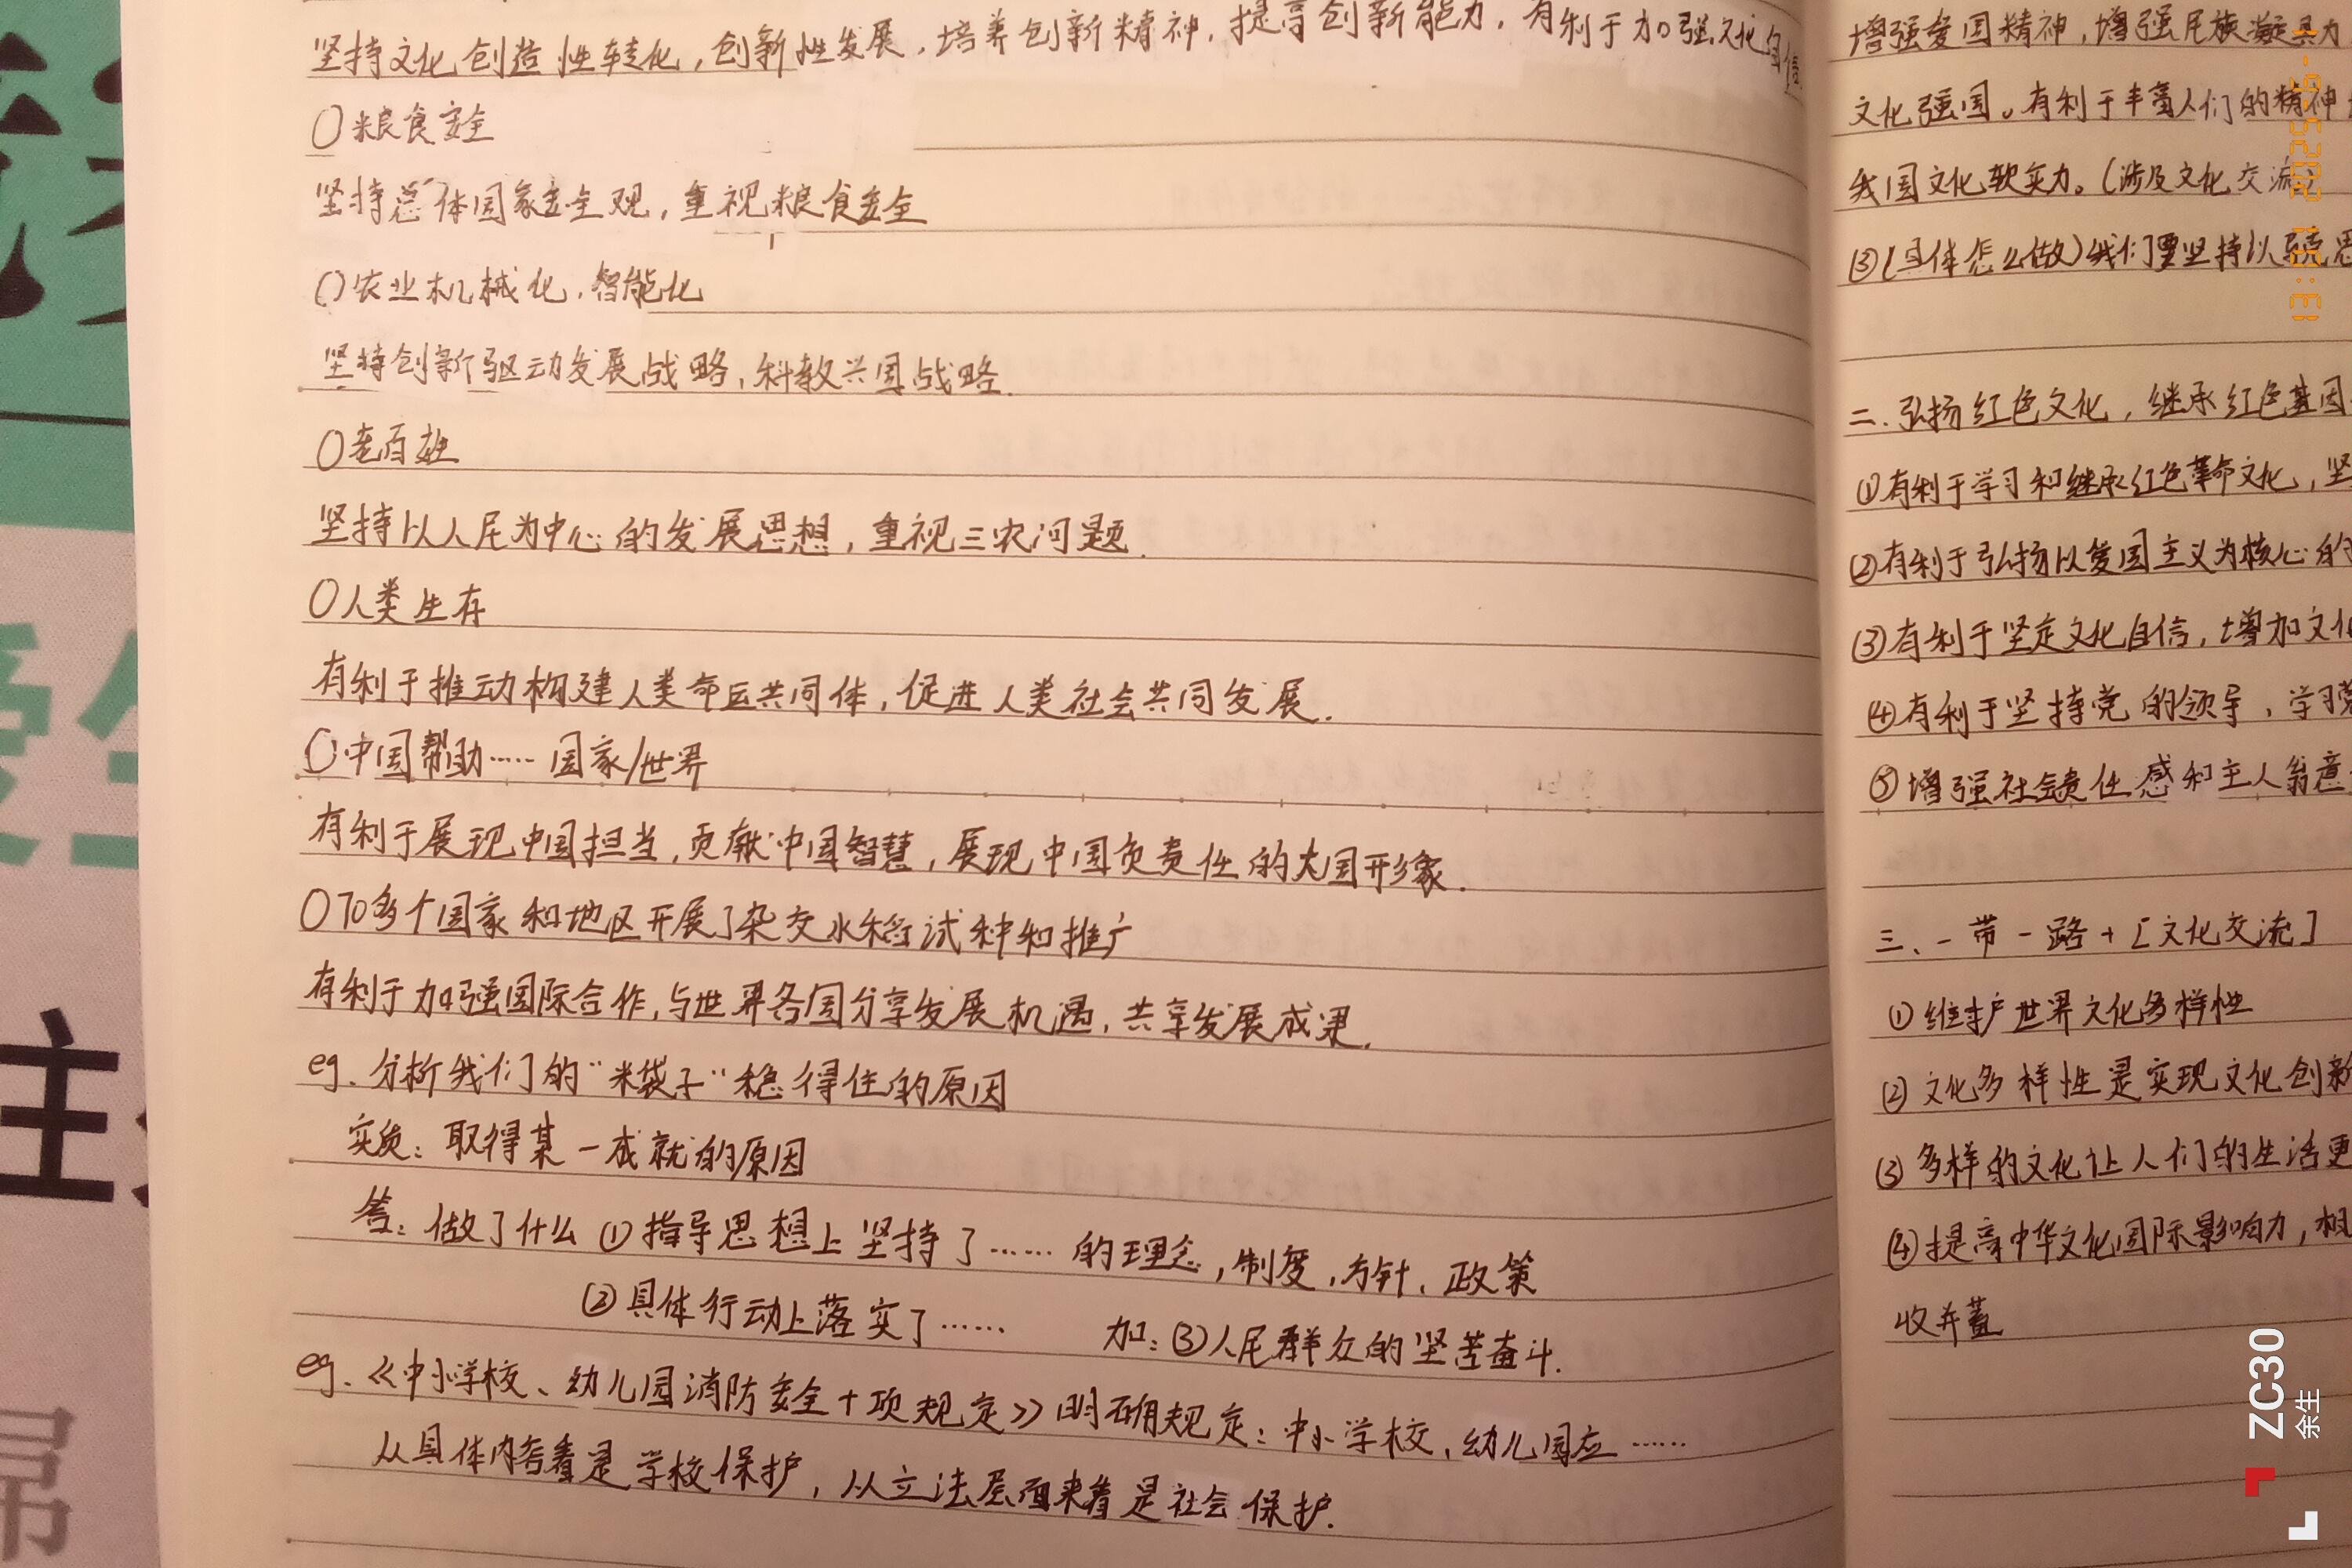 坚持文化创造性转化，创新性发展，培养创新精神，提高创新能力，有利于加强文化自信
〇粮食安全
坚持总体国家安全观，重视粮食安全
〇农业机械化，智能化
坚持创新驱动发展战略，科教兴国战略.
〇老百姓
坚持以人民为中心的发展思想，重视三农问题.
〇人类生存
有利于推动构建人类命运共同体，促进人类社会共同发展.
〇中国帮助……国家/世界
有利于展现中国担当，贡献中国智慧，展现中国负责任的大国形象.
〇70多个国家和地区开展了杂交水稻试种和推广
有利于加强国际合作，与世界各国分享发展机遇，共享发展成果.
eg. 分析我们的“米袋子”稳得住的原因
实质：取得某一成就的原因
答：做了什么 ①指导思想上坚持了……的理念，制度，方针，政策
②具体行动上落实了…… 加：③人民群众的坚苦奋斗.
eg.《中小学校、幼儿园消防安全十项规定》明确规定：中小学校，幼儿园应……
从具体内容看是学校保护，从立法层面来看是社会保护.
增强爱国精神，增强民族凝聚力
文化强国。有利于丰富人们的精神
我国文化软实力。（涉及文化交流）
③（具体怎么做）我们要坚持以马克思
二.弘扬红色文化，继承红色基因
①有利于学习和继承红色革命文化，坚
②有利于弘扬以爱国主义为核心的
③有利于坚定文化自信，增加文化
④有利于坚持党的领导，学习党
⑤增强社会责任感和主人翁意
三、一带一路+［文化交流］
①维护世界文化多样性
②文化多样性是实现文化创新
③多样的文化让人们的生活更
④提高中华文化国际影响力，
收并蓄
主
ZC30
余生